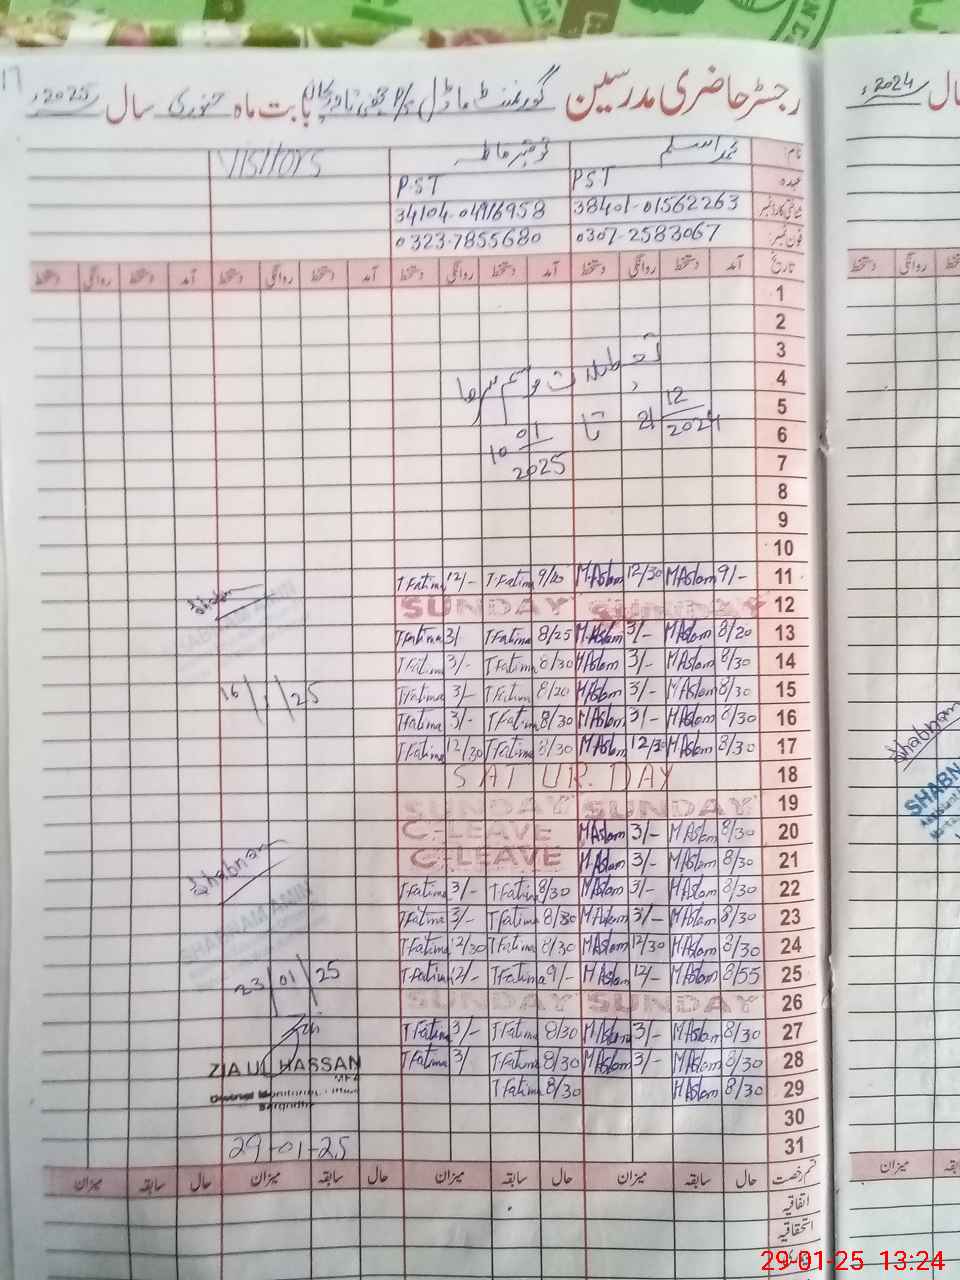 رجسٹر حاضری مدرسین گورنمنٹ ماڈل بابت ماہ جنوری سال 2025ء
نام: محمد اسلم VISITORS
عہدہ PST P.ST
38401-01562263 34104-04916958
فون نمبر: 0307-2583067 0323-7855680
تاریخ آمد دستخط روانگی دستخط آمد دستخط روانگی دستخط آمد دستخط روانگی دستخط آمد دستخط روانگی دستخط
1
2
3
تعطیلات موسم سرما
4
5
21 12/2024 تا 10 01/2025
6
7
8
9
10
T Fatima 12/- T Fatima 9/20 M Aslam 12/30 M Aslam 9/- 11
SUNDAY SUNDAY 12
T Fatima 3/- T Fatima 8/25 M Aslam 3/- M Aslam 8/20 13
T Fatima 3/- T Fatima 8/30 M Aslam 3/- M Aslam 8/30 14
16/1/25 T Fatima 3/- T Fatima 8/20 M Aslam 3/- M Aslam 8/30 15
T Fatima 3/- T Fatima 8/30 M Aslam 3/- M Aslam 8/30 16
T Fatima 12/30 T Fatima 8/30 M Aslam 12/30 M Aslam 8/30 17
SATURDAY 18
SUNDAY SUNDAY 19
C-LEAVE M Aslam 3/- M Aslam 8/30 20
C-LEAVE M Aslam 3/- M Aslam 8/30 21
Shabnam T Fatima 3/- T Fatima 8/30 M Aslam 3/- M Aslam 8/30 22
T Fatima 3/- T Fatima 8/30 M Aslam 3/- M Aslam 8/30 23
SHABNAM AMIN T Fatima 12/30 T Fatima 8/30 M Aslam 12/30 M Aslam 8/30 24
23/01/25 T Fatima 12/- T Fatima 9/- M Aslam 12/- M Aslam 8/55 25
SUNDAY SUNDAY 26
T Fatima 3/- T Fatima 8/30 M Aslam 3/- M Aslam 8/30 27
ZIA UL HASSAN T Fatima 3/ T Fatima 8/30 M Aslam 3/- M Aslam 8/30 28
T Fatima 8/30 M Aslam 8/30 29
Sargodha
30
29-01-25 31
قسم رخصت حال سابقہ میزان حال سابقہ میزان حال سابقہ میزان حال سابقہ میزان
اتفاقیہ
استحقاقیہ
2024ء
سال
دستخط روانگی
Shabnam
SHABN
میزان
29-01-25 13:24